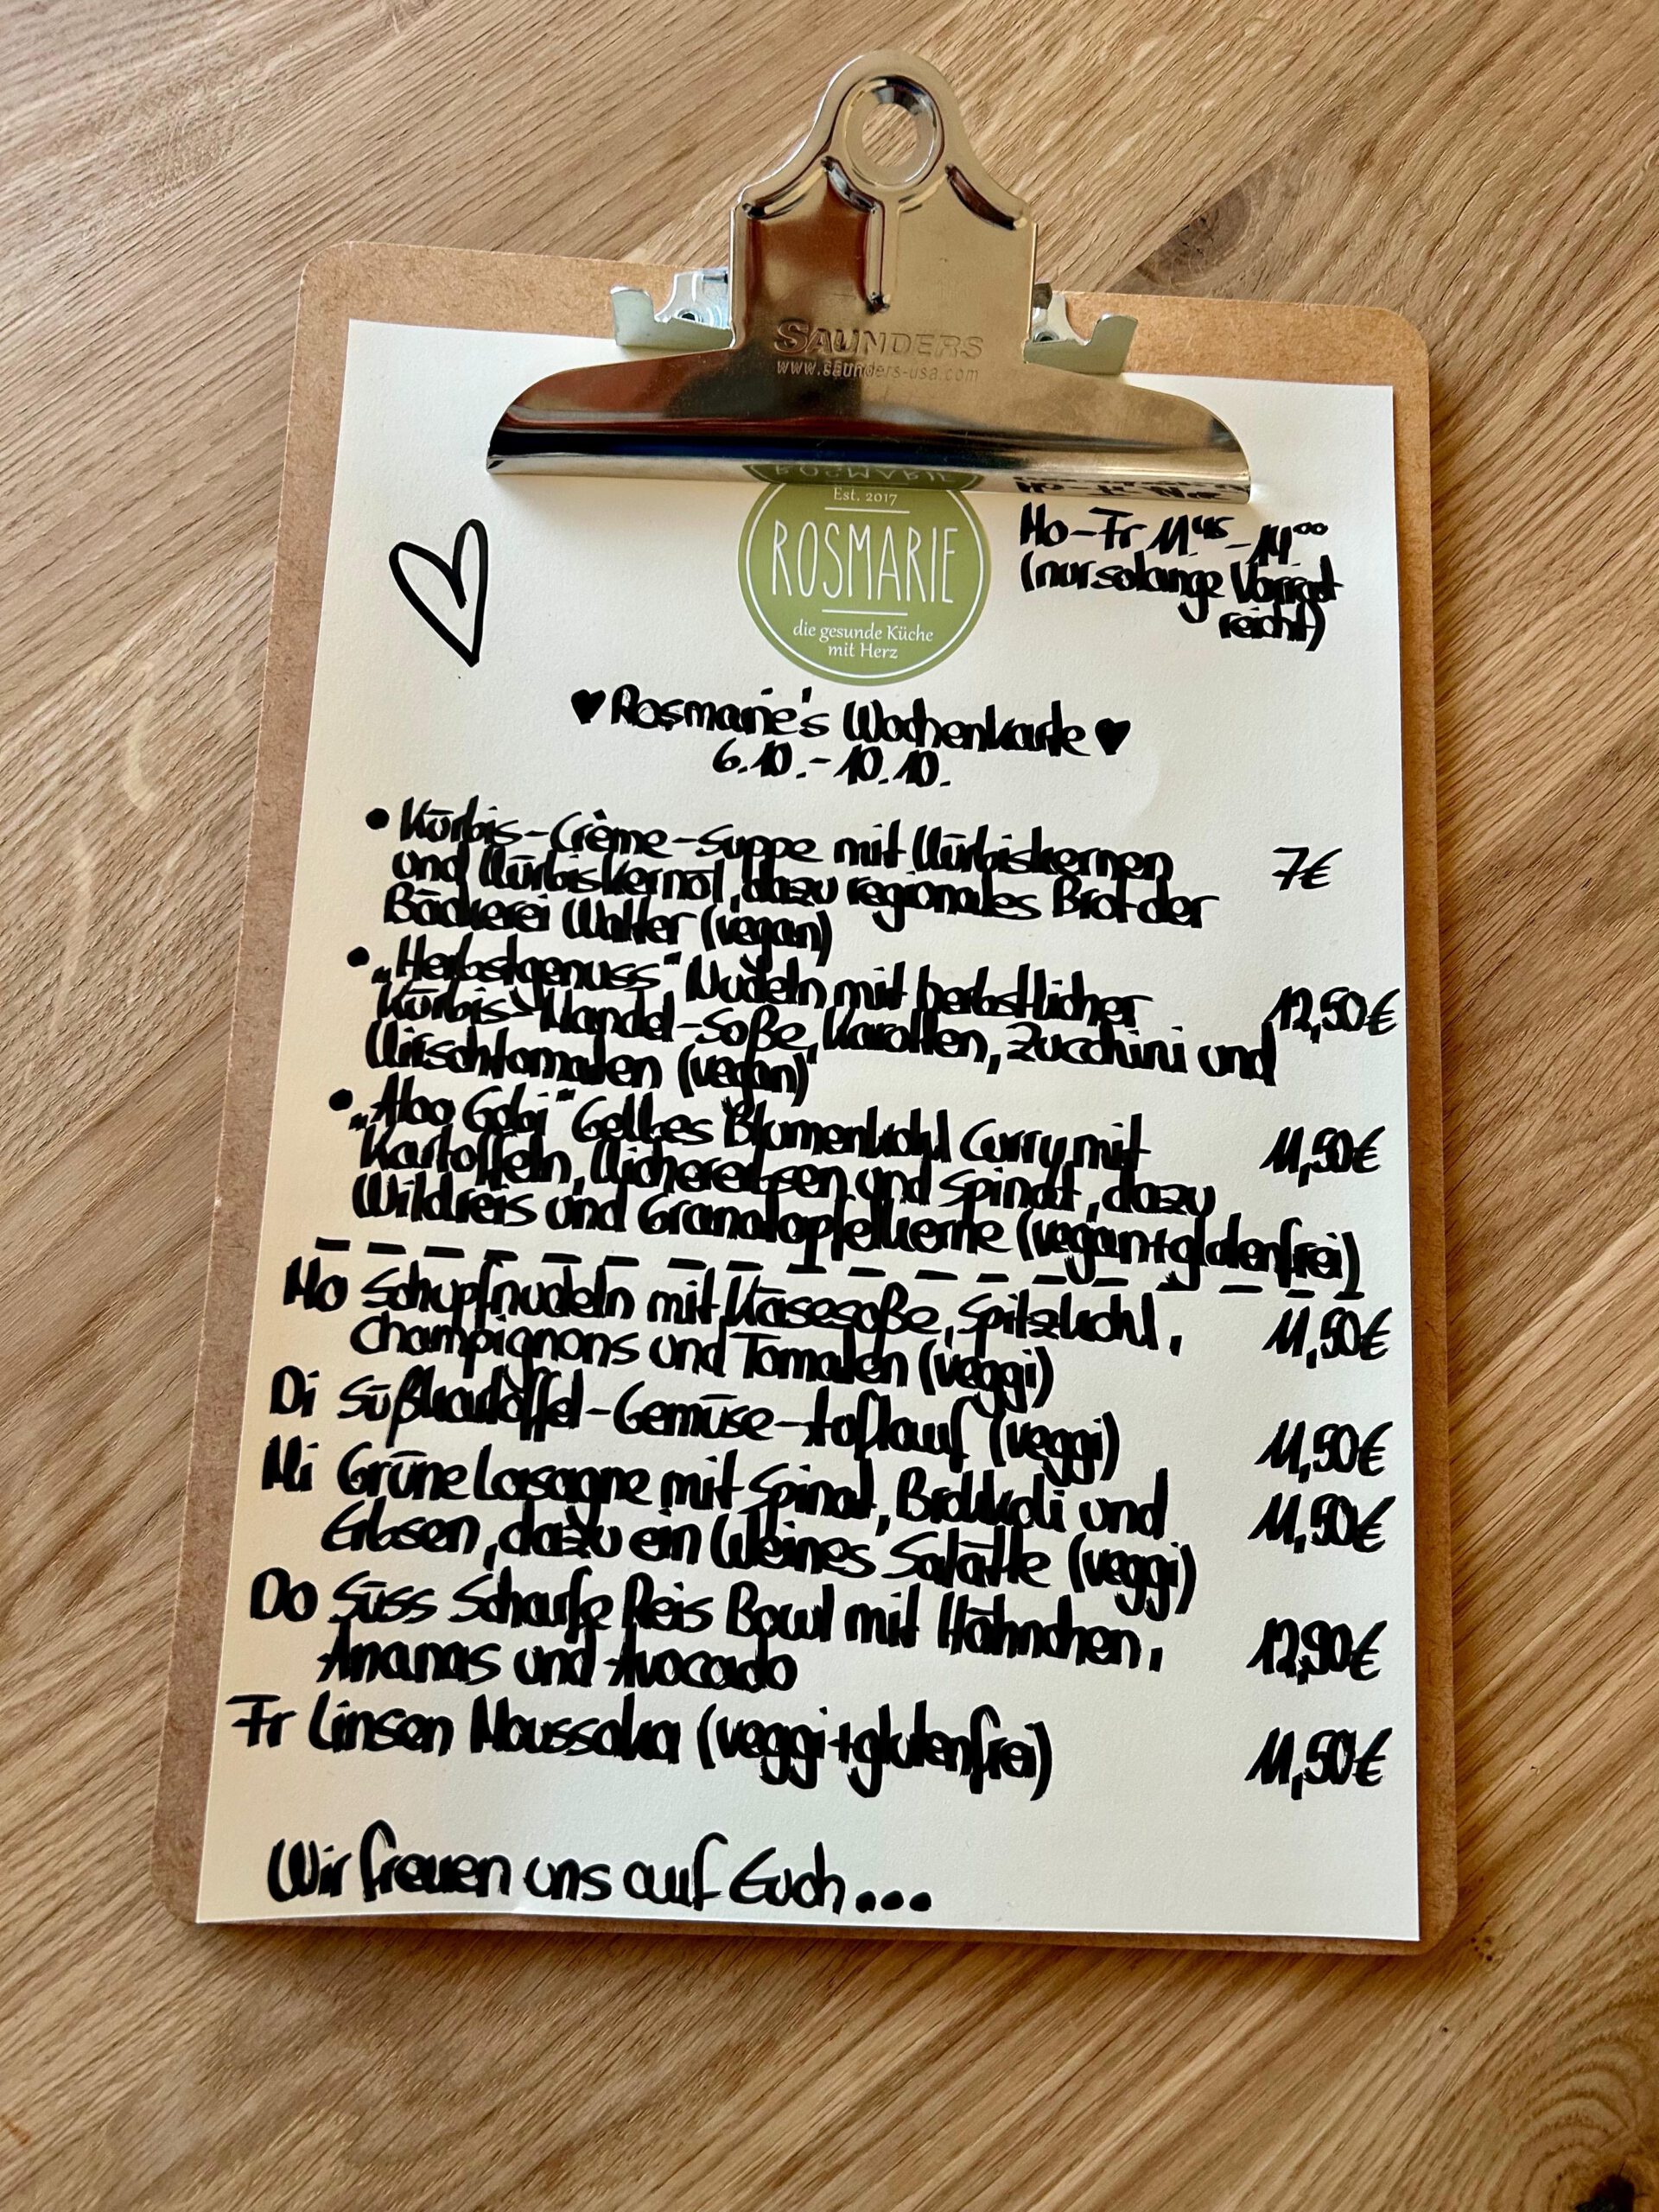 SAUNDERS
www.saunders-usa.com
Est. 2017
ROSMARIE
die gesunde Küche
mit Herz
Mo-Fr 11.45-14.00
(nur solange Vorrat
reicht)
♥ Rosmarie's Wochenkarte ♥
6.10.-10.10.
• Kürbis-Crème-Suppe mit Kürbiskernen 7€
und Kürbiskernöl, dazu regionales Brot der
Bäckerei Walter (vegan)
• „Herbstgenuss" Nudeln mit herbstlicher 12,50€
Kürbis-Mandel-Soße, Karotten, Zucchini und
Kirschtomaten (vegan)
• „Aloo Gobi" Gelbes Blumenkohl Curry mit 11,50€
Kartoffeln, Kichererbsen und Spinat, dazu
Wildreis und Granatapfelkerne (vegan+glutenfrei)
Mo Schupfnudeln mit Käsesoße, Spitzkohl, 11,50€
Champignons und Tomaten (veggi)
Di Süßkartoffel-Gemüse-Auflauf (veggi) 11,50€
Mi Grüne Lasagne mit Spinat, Brokkoli und 11,50€
Erbsen, dazu ein kleines Salätle (veggi)
Do Süss Scharfe Reis Bowl mit Hähnchen, 12,90€
Ananas und Avocado
Fr Linsen Moussaka (veggi+glutenfrei) 11,50€
Wir freuen uns auf Euch...